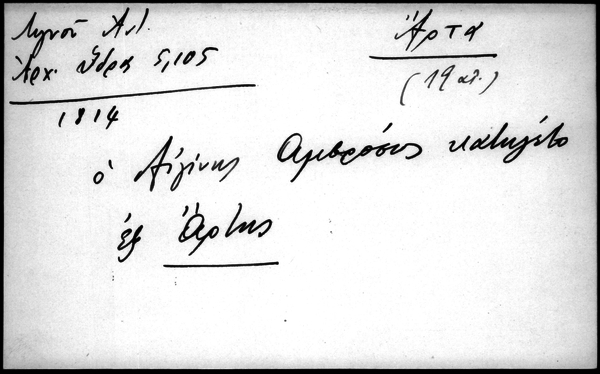 Λιγνοῦ Ἀντ.
Ἀρχ. Ὕδρας 5,105
1814
Ἄρτα
(19 αἰ.)
ὁ Αἰγίνης Ἀμβρόσιος κατήγετο
ἐξ Ἄρτης